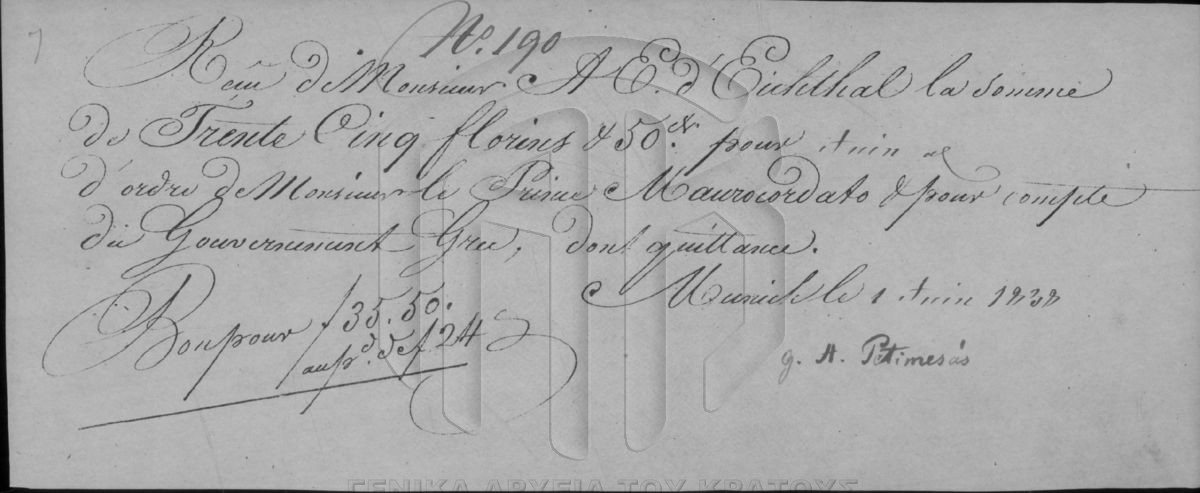 7
No. 190
Reçu de Monsieur A E. d'Eichthal la somme
de Trente Cinq florins & 50 xr. pour Juin
d'ordre de Monsieur le Prince Maurocordato & pour compte
du Gouvernement Grec, dont quittance.
Munich le 1 Juin 1838
Bon pour f 35.50.
au pd. de f 24
g. A. Petimesás
ΓΕΝΙΚΑ ΑΡΧΕΙΑ ΤΟΥ ΚΡΑΤΟΥΣ